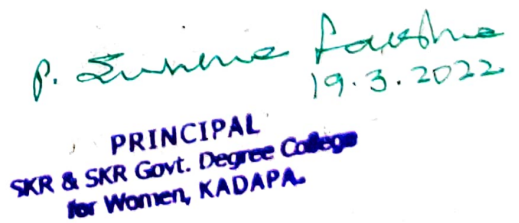 P.
19.3.2022
PRINCIPAL
SKR & SKR Govt. Degree College
for Women, KADAPA.